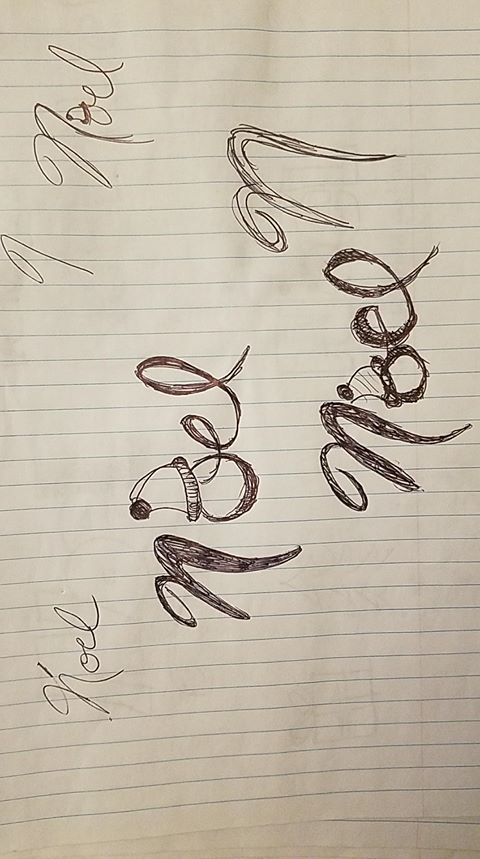 Noel
Noel
Noel
N
Noel